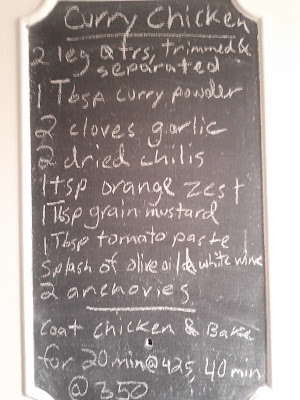 Curry Chicken
2 leg qtrs, trimmed &
separated
1 Tbsp curry powder
2 cloves garlic
2 dried chilis
1 tsp orange zest
1 Tbsp grain mustard
1 Tbsp tomato paste
splash of olive oil & white wine
2 anchovies
Coat chicken & Bake
for 20 min @ 425, 40 min
@ 350